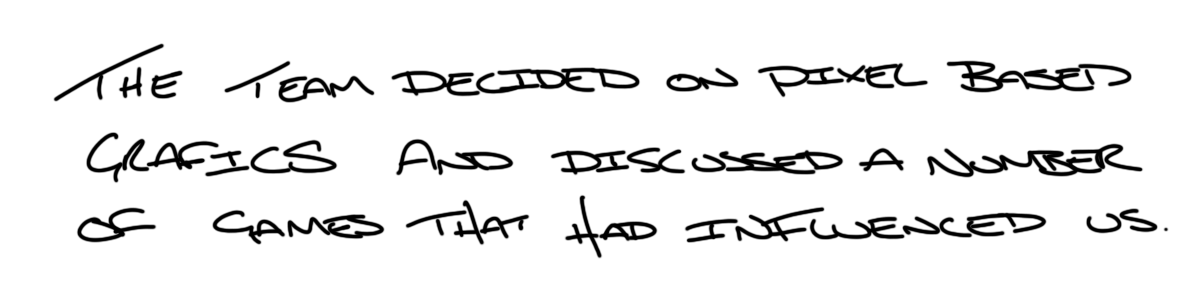 THE TEAM DECIDED ON PIXEL BASED
GRAFICS AND DISCUSSED A NUMBER
OF GAMES THAT HAD INFLUENCED US.